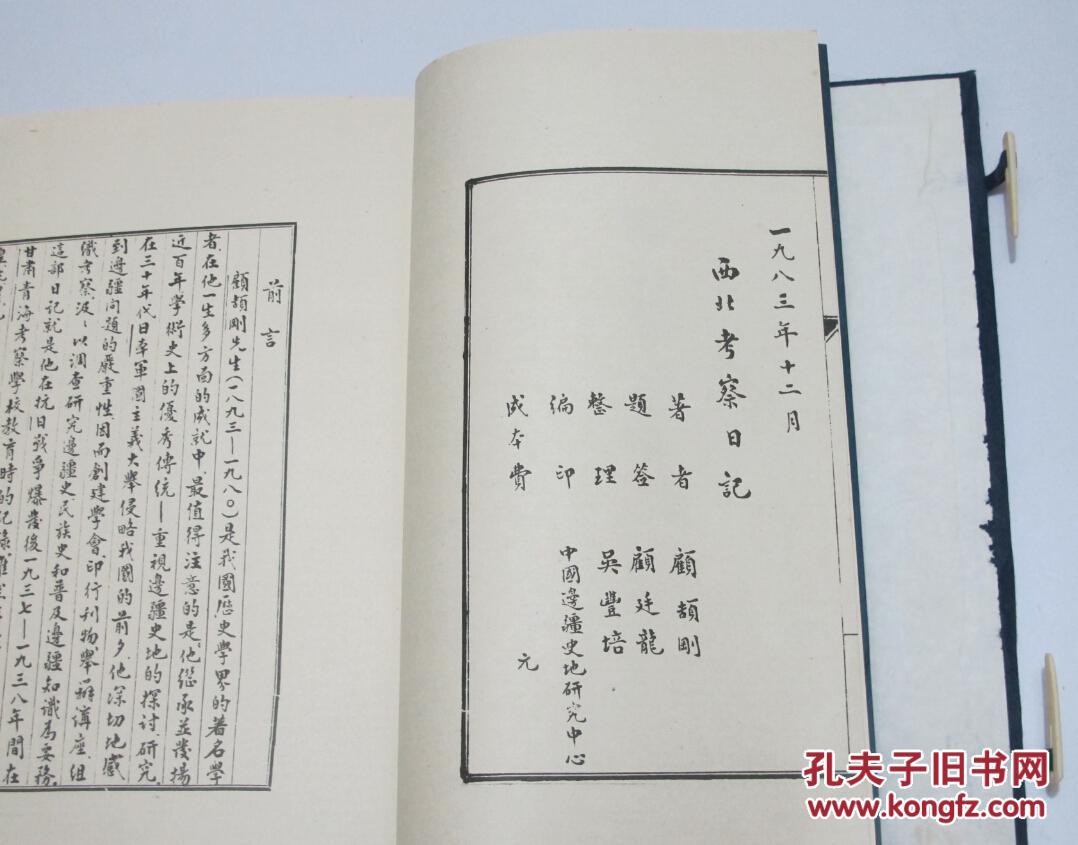 一九八三年十二月
西北考察日記
著者 顧頡剛
題签 顧廷龍
整理 吳豐培
编印 中國邊疆史地研究中心
成本費 元
前言
顧頡剛先生(一八九三—一九八〇)是我國歷史學界的著名學
者.在他一生多方面的成就中,最值得注意的是,他继承並發揚
近百年學術史上的優秀傳统—重視邊疆史地的探討.研究.
在三十年代日本軍國主義大舉侵略我國的前夕,他深切地感
到邊疆问題的嚴重性,因而創建學會.印行刊物,舉辦講座.组
織考察.汲:以调查研究邊疆史,民族史和普及邊疆知識為要務.
這部日记就是他在抗日戰争爆發後一九三七—一九三八年間在
甘肅青海考察學校教育時的纪錄
孔夫子旧书网
www.kongfz.com